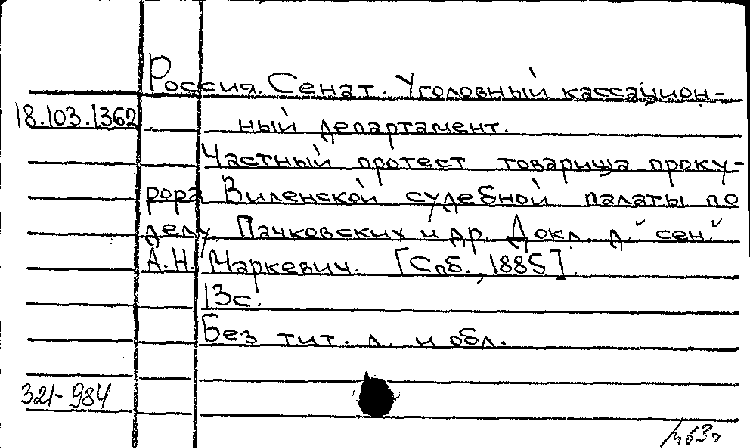 Россия. Сенат. Уголовный кассацион-
18.103.1362 ный департамент.
Частный протест товарища проку-
рора Виленской судебной палаты по
делу Пачковских и др. Докл. д. сен.
А.Н. Маркевич. [Спб., 1885].
13с.
Без тит. л. и обл.
321-984